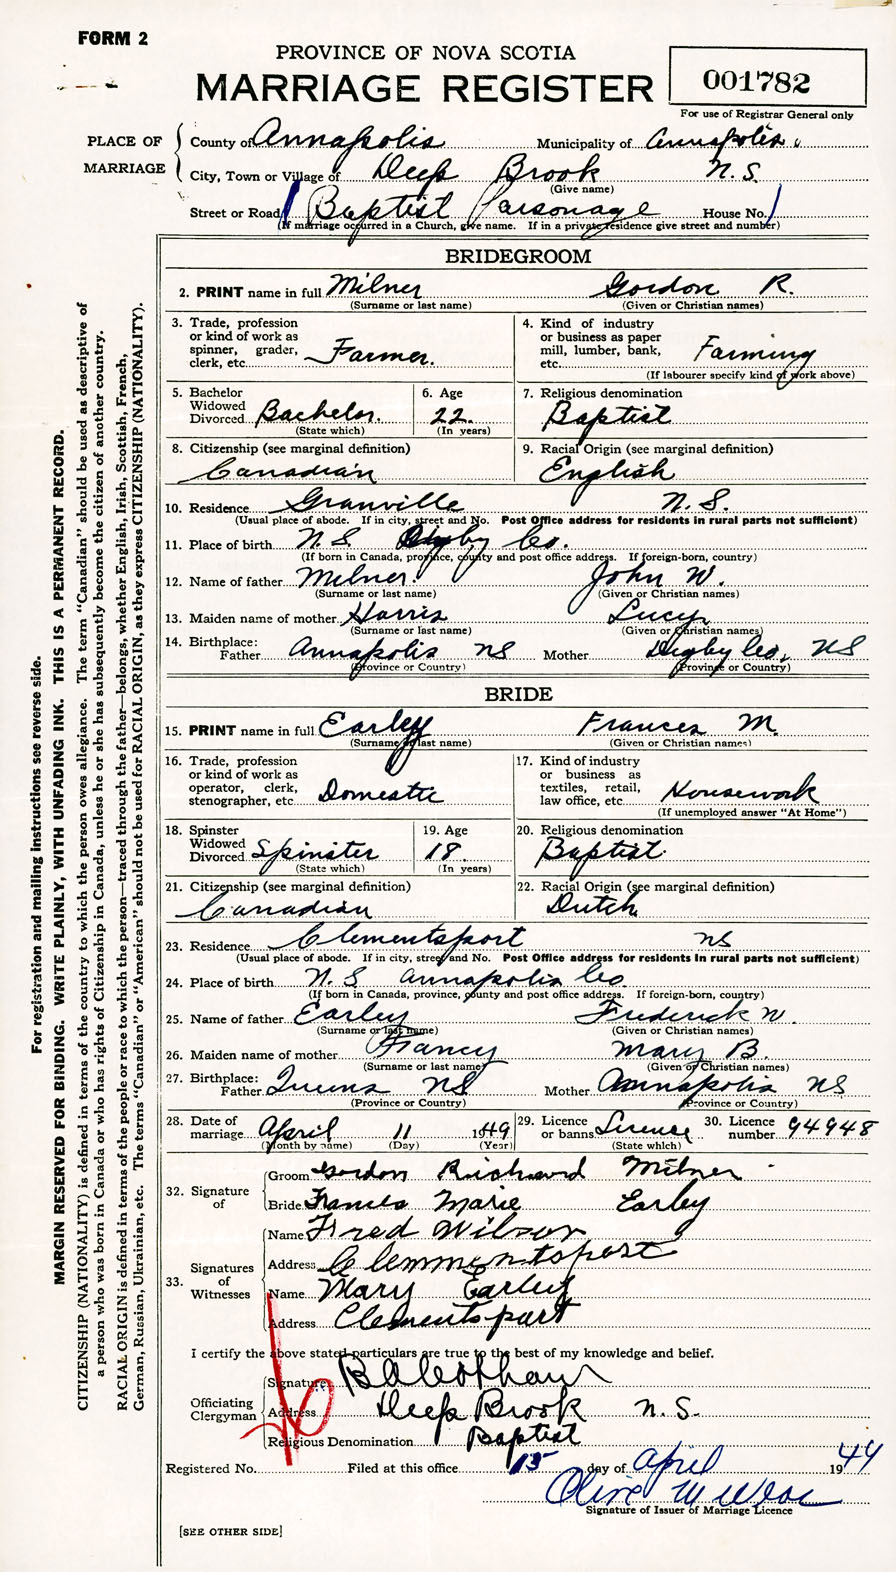 FORM 2
PROVINCE OF NOVA SCOTIA
MARRIAGE REGISTER
001782
For use of Registrar General only
PLACE OF MARRIAGE
County of Annapolis Municipality of Annapolis
City, Town or Village of Deep Brook N.S.
(Give name)
Street or Road Baptist Parsonage House No.
(If marriage occurred in a Church, give name. If in a private residence give street and number)
BRIDEGROOM
2. PRINT name in full Milner Gordon R.
(Surname or last name) (Given or Christian names)
3. Trade, profession or kind of work as spinner, grader, clerk, etc. Farmer.
4. Kind of industry or business as paper mill, lumber, bank, etc. Farming
(If labourer specify kind of work above)
5. Bachelor Widowed Divorced Bachelor.
(State which)
6. Age 22.
(In years)
7. Religious denomination
Baptist
8. Citizenship (see marginal definition)
Canadian
9. Racial Origin (see marginal definition)
English
10. Residence Granville N.S.
(Usual place of abode. If in city, street and No. Post Office address for residents in rural parts not sufficient)
11. Place of birth N.S. Digby Co.
(If born in Canada, province, county and post office address. If foreign-born, country)
12. Name of father Milner. John W.
(Surname or last name) (Given or Christian names)
13. Maiden name of mother Harris Lucy
(Surname or last name) (Given or Christian names)
14. Birthplace: Father Annapolis NS Mother Digby Co, NS
(Province or Country) (Province or Country)
BRIDE
15. PRINT name in full Earley Frances M.
(Surname or last name) (Given or Christian names)
16. Trade, profession or kind of work as operator, clerk, stenographer, etc. Domestic
17. Kind of industry or business as textiles, retail, law office, etc. Housework
(If unemployed answer "At Home")
18. Spinster Widowed Divorced Spinster
(State which)
19. Age 18.
(In years)
20. Religious denomination
Baptist
21. Citizenship (see marginal definition)
Canadian
22. Racial Origin (see marginal definition)
Dutch
23. Residence Clementsport NS
(Usual place of abode. If in city, street and No. Post Office address for residents in rural parts not sufficient)
24. Place of birth N.S Annapolis Co
(If born in Canada, province, county and post office address. If foreign-born, country)
25. Name of father Earley Frederick W.
(Surname or last name) (Given or Christian names)
26. Maiden name of mother Francy Mary B.
(Surname or last name) (Given or Christian names)
27. Birthplace: Father Queens NS Mother Annapolis NS
(Province or Country) (Province or Country)
28. Date of marriage April 11 1949
(Month by name) (Day) (Year)
29. Licence or banns Licence
(State which)
30. Licence number 94948
32. Signature of
Groom Gordon Richard Milner
Bride Frances Marie Earley
33. Signatures of Witnesses
Name Fred Wilson
Address Clemmentsport
Name Mary Earley
Address Clementsport
I certify the above stated particulars are true to the best of my knowledge and belief.
Officiating Clergyman
Signature
Address Deep Brook N.S.
Religious Denomination Baptist
Registered No. Filed at this office 15 day of April 1949
Signature of Issuer of Marriage Licence
[SEE OTHER SIDE]
For registration and mailing instructions see reverse side.
MARGIN RESERVED FOR BINDING. WRITE PLAINLY, WITH UNFADING INK. THIS IS A PERMANENT RECORD.
CITIZENSHIP (NATIONALITY) is defined in terms of the country to which the person owes allegiance. The term "Canadian" should be used as descriptive of
a person who was born in Canada or who has rights of Citizenship in Canada, unless he or she has subsequently become the citizen of another country.
RACIAL ORIGIN is defined in terms of the people or race to which the person—traced through the father—belongs, whether English, Irish, Scottish, French,
German, Russian, Ukrainian, etc. The terms "Canadian" or "American" should not be used for RACIAL ORIGIN, as they express CITIZENSHIP (NATIONALITY).